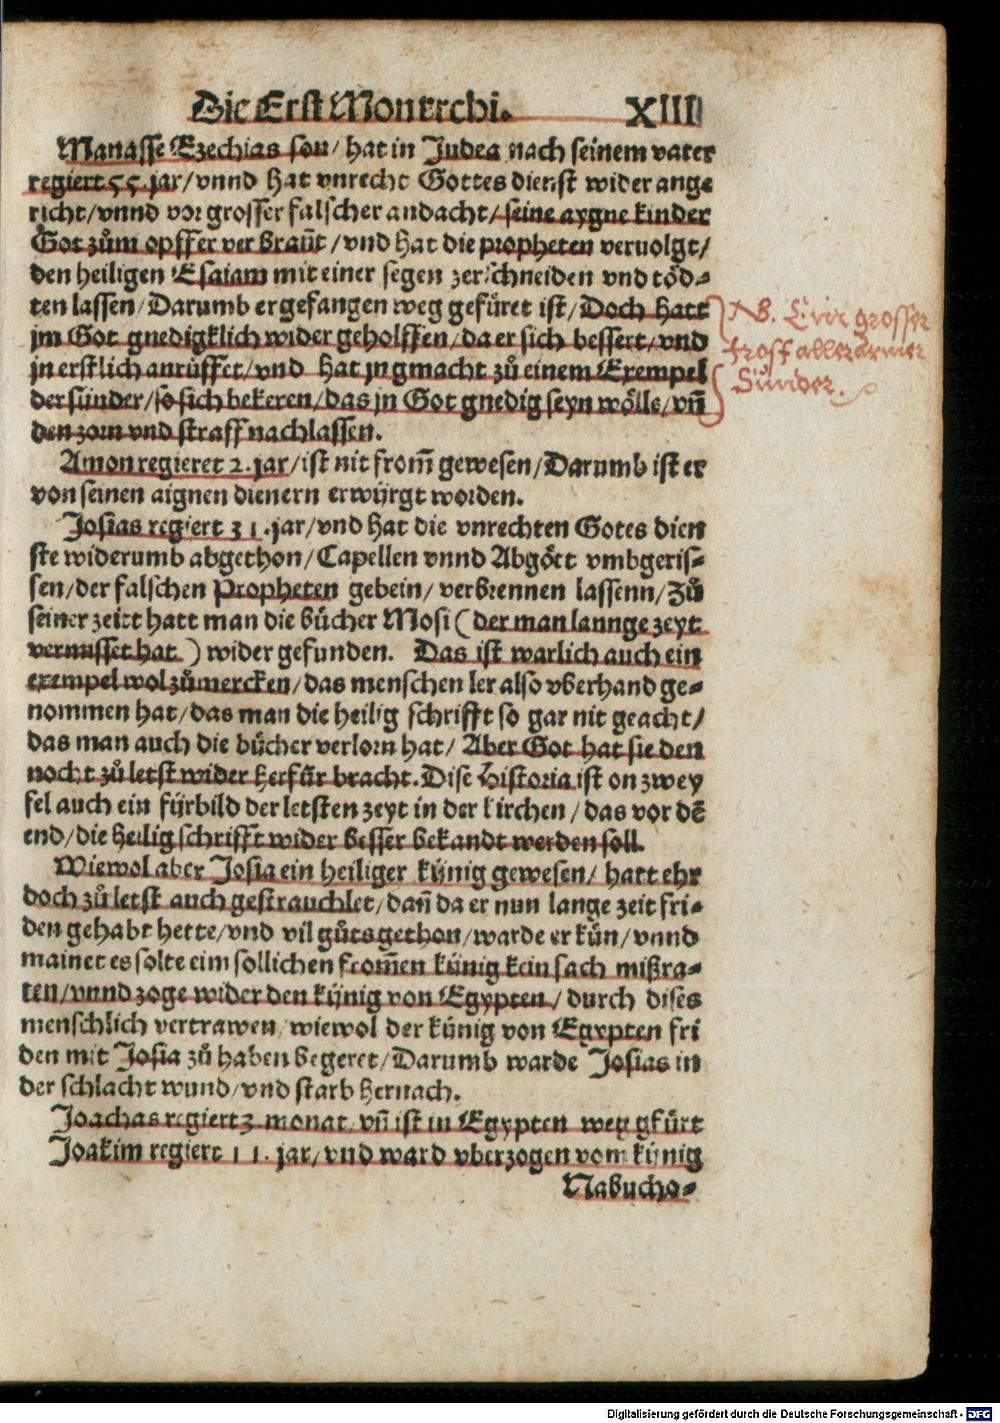 Die Erst Monerchi. XIIII
Manasse Ezechias son/ hat in Judea nach seinem vater
regiert 55. jar/ vnnd hat vnrecht Gottes dienst wider ange
richt/ vnnd vor grosser falscher andacht/ seine aygne kinder
Got zům opffer verbrañt/ vnd hat die propheten veruolgt/
den heiligen Esaiam mit einer segen zerschneiden vnd töd⸗
ten lassen/ Darumb er gefangen weg gefüret ist/ Doch hatt
jm Got gnedigklich wider geholffen/ da er sich bessert/ vnd
jn erstlich anrüffet/ vnd hat jn gmacht zů einem Exempel
der sünder/ so sich bekeren/ das jn Got gnedig seyn wölle/ vñ
den zorn vnd straff nachlassen.
NB. Ein grosser
trost aller armer
Sünder.
Amon regieret 2. jar/ ist nit from̃ gewesen/ Darumb ist er
von seinen aignen dienern erwürgt worden.
Josias regiert 31. jar/ vnd hat die vnrechten Gotes dien
ste widerumb abgethon/ Capellen vnnd Abgött vmbgeris⸗
sen/ der falschen Propheten gebein/ verbrennen lassenn/ Zů
seiner zeitt hatt man die bücher Mosi (der man lannge zeyt
vermisset hat) wider gefunden. Das ist warlich auch ein
exempel wol zů mercken/ das menschen ler also vberhand ge⸗
nommen hat/ das man die heilig schrifft so gar nit geacht/
das man auch die bücher verlorn hat/ Aber Got hat sie den
nocht zů letst wider herfür bracht. Dise Historia ist on zwey
fel auch ein fürbild der letsten zeyt in der kirchen/ das vor dẽ
end/ die heilig schrifft wider besser bekandt werden soll.
Wiewol aber Josia ein heiliger künig gewesen/ hatt ehr
doch zů letst auch gestrauchlet/ dañ da er nun lange zeit fri⸗
den gehabt hette/ vnd vil gůts gethon/ warde er kün/ vnnd
mainet es solte eim sollichen from̃en künig kein sach mißra⸗
ten/ vnnd zoge wider den künig von Egypten/ durch dises
menschlich vertrawen/ wiewol der künig von Egypten fri
den mit Josia zů haben begeret/ Darumb warde Josias in
der schlacht wund/ vnd starb hernach.
Joachas regiert 3 monat/ vñ ist in Egypten weg gfürt
Joakim regiert 11. jar/ vnd ward vberzogen vom künig
Nabucho⸗
Digitalisierung gefördert durch die Deutsche Forschungsgemeinschaft - DFG